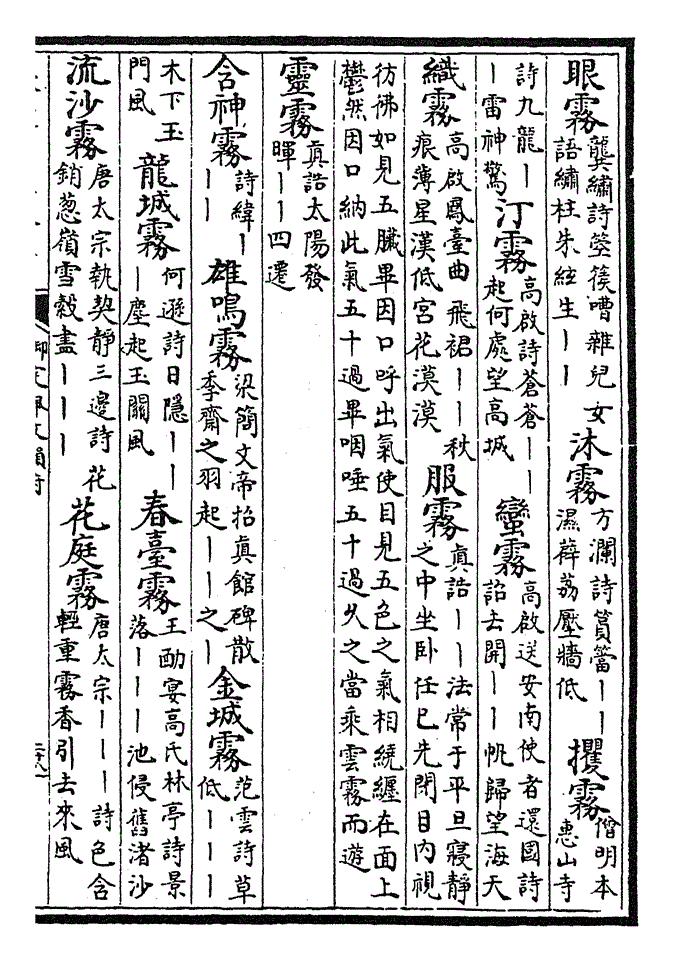 眼霧 龔繡詩箜篌嘈雜兒女語繡柱朱絃生丨丨 沐霧 方瀾詩篔簹丨丨濕薜荔壓牆低 攫霧 僧明本惠山寺
詩九龍丨丨雷神驚 汀霧 高啟詩蒼蒼丨丨起何處望高城 蠻霧 高啟送安南使者還國詩詔去開丨丨帆歸望海天
織霧 高啟鳳臺曲 飛裙丨丨秋痕薄星漢低宮花漠漠 服霧 真誥丨丨法常于平旦寢靜之中坐卧任已先閉目內視
彷彿如見五臟畢因口呼出氣使目見五色之氣相繞纏在面上鬱然因口納此氣五十過畢咽唾五十過久之當乘雲霧而遊
靈霧 真誥太陽發暉丨丨四遷
含神霧 詩緯丨丨丨 雄鳴霧 梁簡文帝招真館碑散季齋之羽起丨丨之丨 金城霧 范雲詩草低丨丨丨
木下玉門風 龍城霧 何遜詩日隱丨丨丨塵起玉關風 春臺霧 王勔宴高氏林亭詩景落丨丨丨池侵舊渚沙
流沙霧 唐太宗執契靜三邊詩 花銷蔥嶺雪縠盡丨丨丨 花庭霧 唐太宗丨丨丨詩色含輕重霧香引去來風